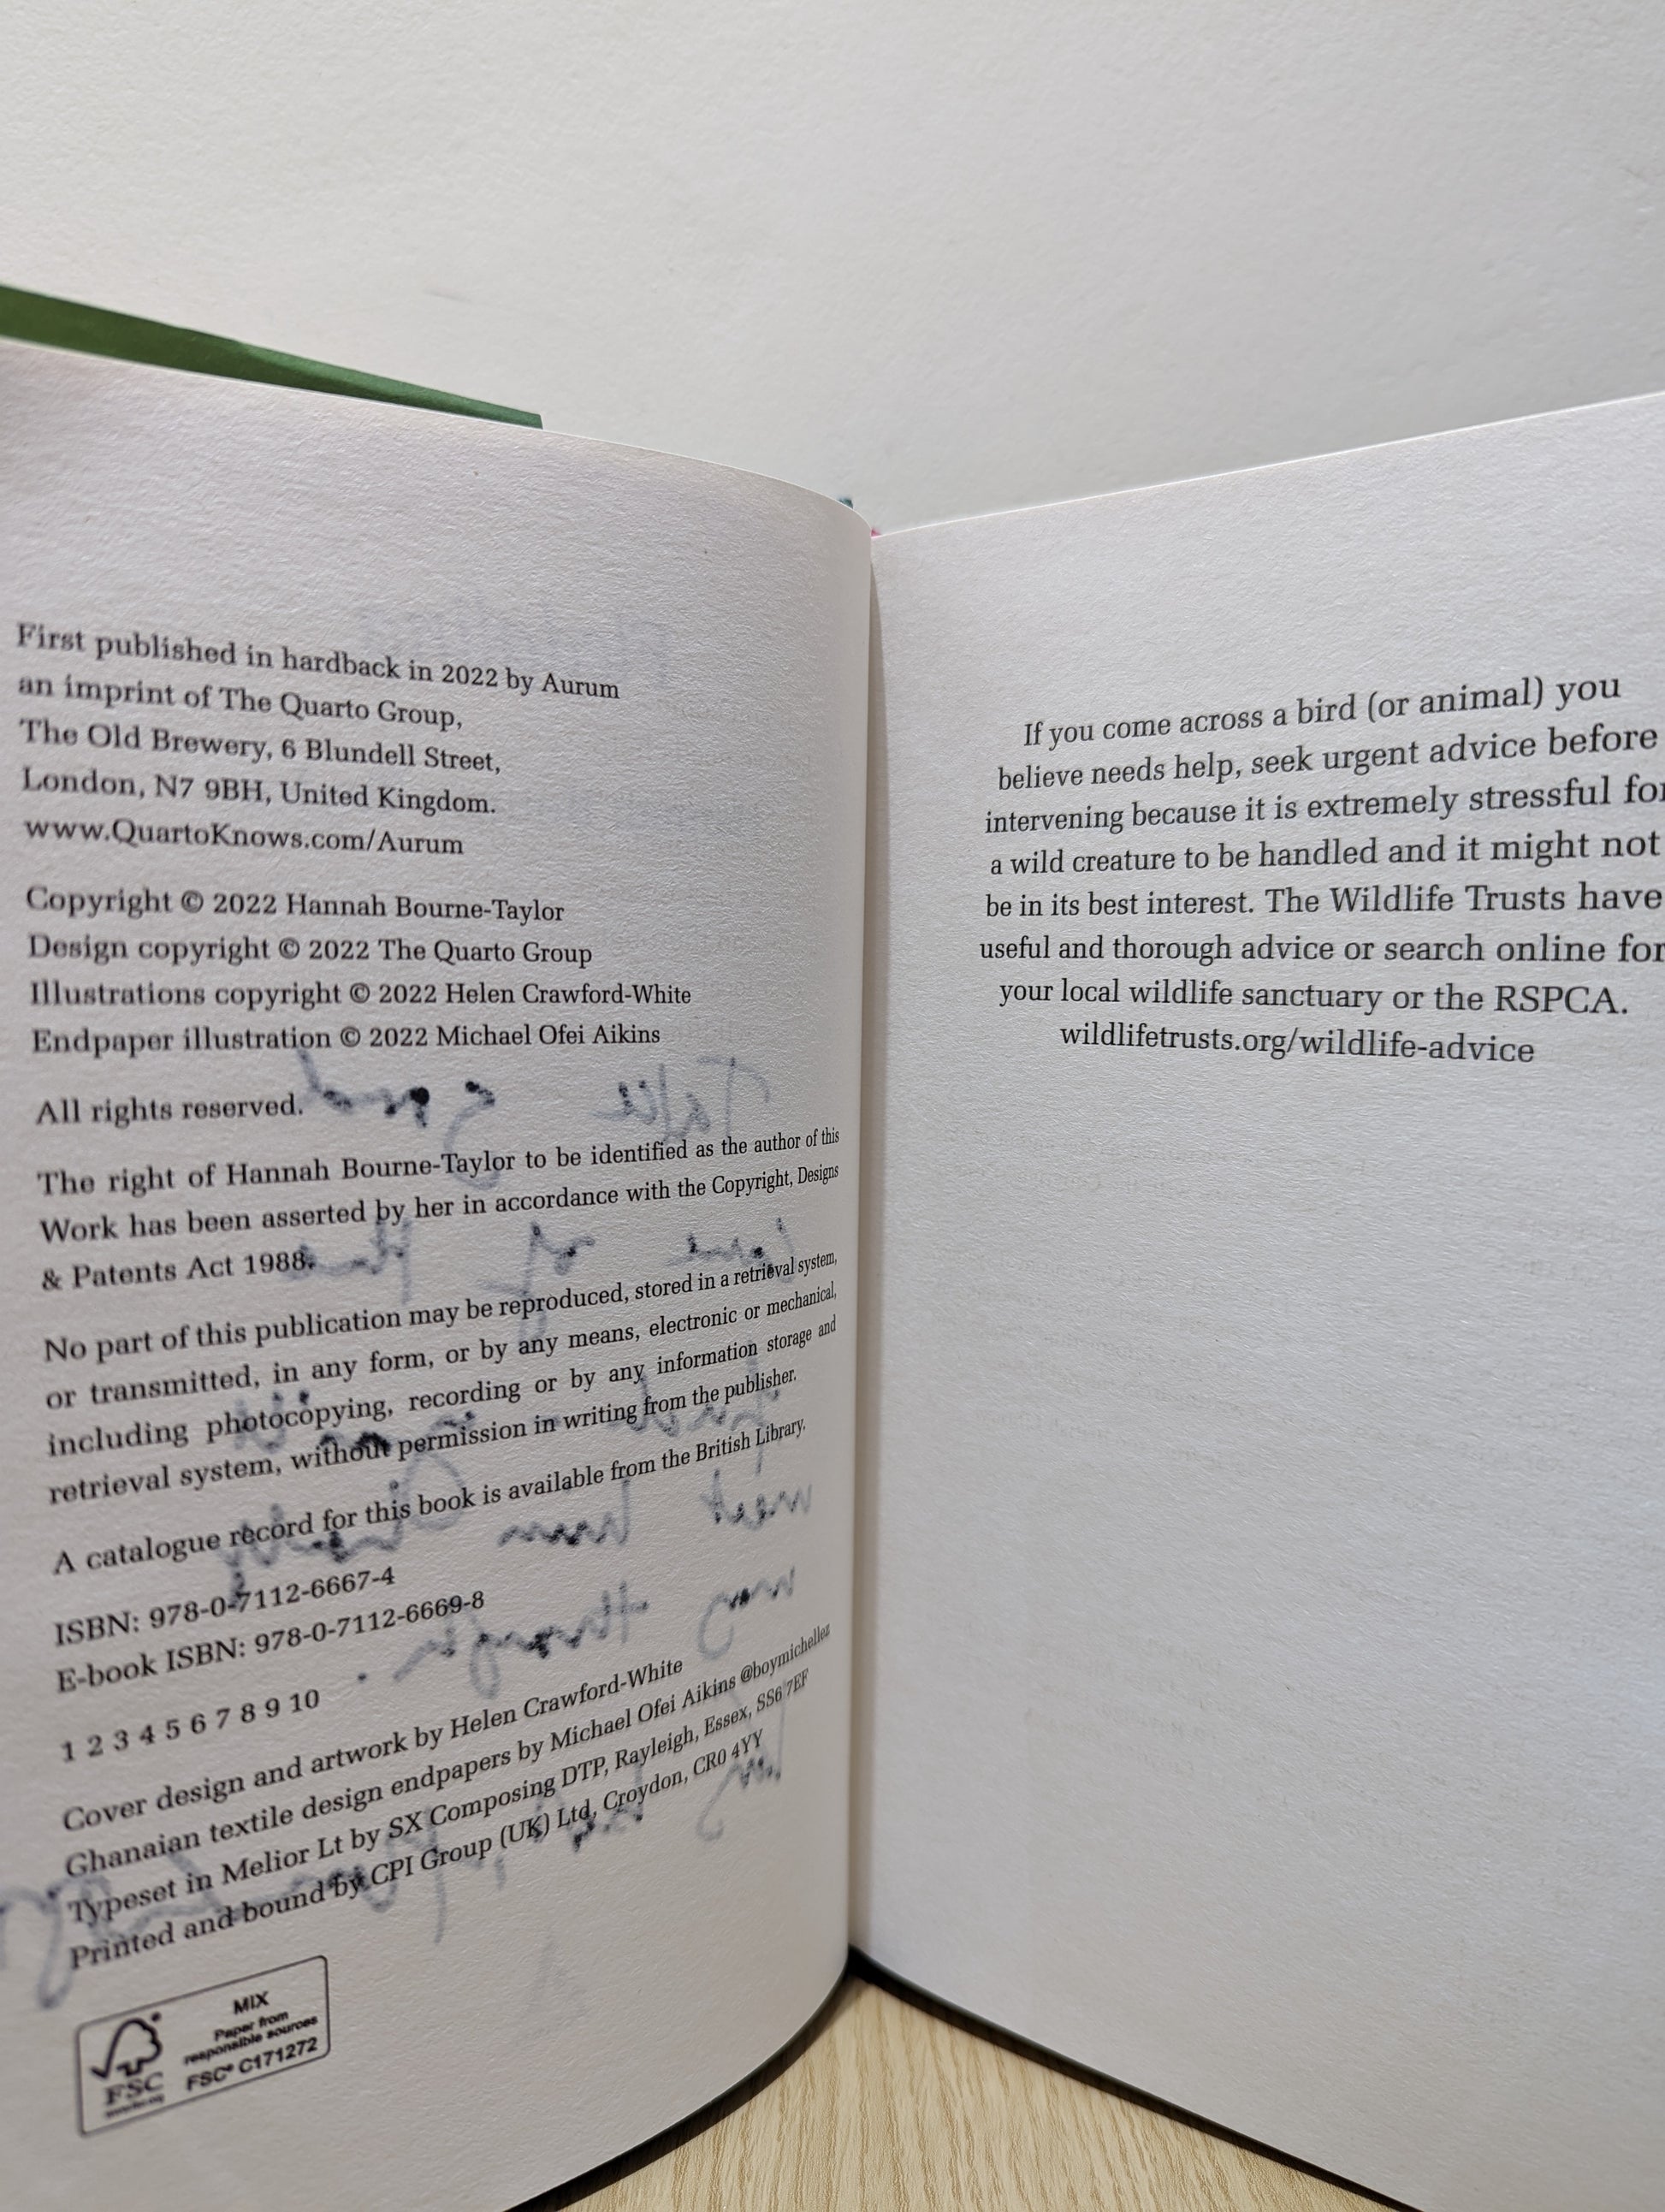 First published in hardback in 2022 by Aurum
an imprint of The Quarto Group,
The Old Brewery, 6 Blundell Street,
London, N7 9BH, United Kingdom.
www.QuartoKnows.com/Aurum
Copyright © 2022 Hannah Bourne-Taylor
Design copyright © 2022 The Quarto Group
Illustrations copyright © 2022 Helen Crawford-White
Endpaper illustration © 2022 Michael Ofei Aikins
All rights reserved.
The right of Hannah Bourne-Taylor to be identified as the author of this
Work has been asserted by her in accordance with the Copyright, Designs
& Patents Act 1988.
No part of this publication may be reproduced, stored in a retrieval system,
or transmitted, in any form, or by any means, electronic or mechanical,
including photocopying, recording or by any information storage and
retrieval system, without permission in writing from the publisher.
A catalogue record for this book is available from the British Library.
ISBN: 978-0-7112-6667-4
E-book ISBN: 978-0-7112-6669-8
1 2 3 4 5 6 7 8 9 10
Cover design and artwork by Helen Crawford-White
Ghanaian textile design endpapers by Michael Ofei Aikins @boymichellez
Typeset in Melior Lt by SX Composing DTP, Rayleigh, Essex, SS6 7EF
Printed and bound by CPI Group (UK) Ltd, Croydon, CR0 4YY
MIX
Paper from
responsible sources
FSC® C171272
FSC
If you come across a bird (or animal) you
believe needs help, seek urgent advice before
intervening because it is extremely stressful for
a wild creature to be handled and it might not
be in its best interest. The Wildlife Trusts have
useful and thorough advice or search online for
your local wildlife sanctuary or the RSPCA.
wildlifetrusts.org/wildlife-advice